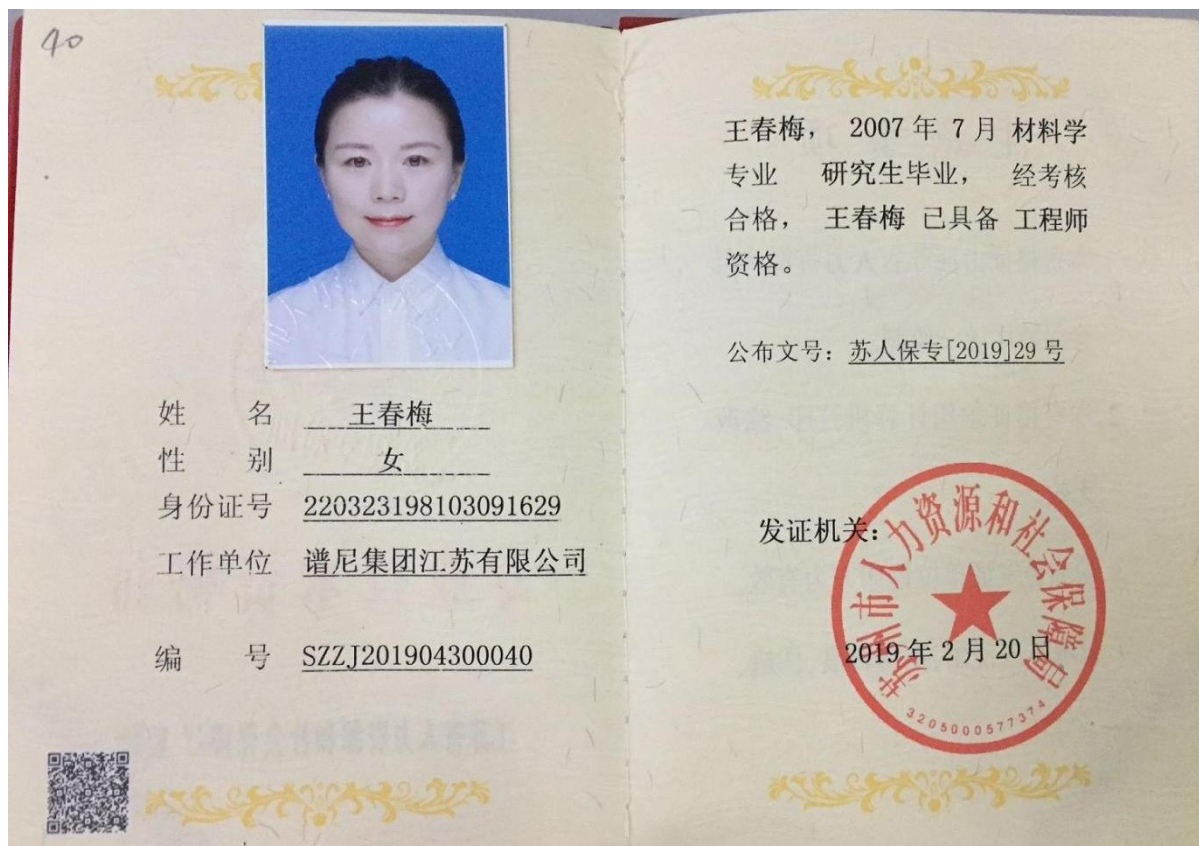 40
姓 名 王春梅
性 别 女
身份证号 220323198103091629
工作单位 谱尼集团江苏有限公司
编 号 SZZJ201904300040
王春梅， 2007 年 7 月 材料学
专业 研究生毕业， 经考核
合格， 王春梅 已具备 工程师
资格。
公布文号：苏人保专[2019]29 号
发证机关：
苏州市人力资源和社会保障局
2019 年 2 月 20 日
3205000577374